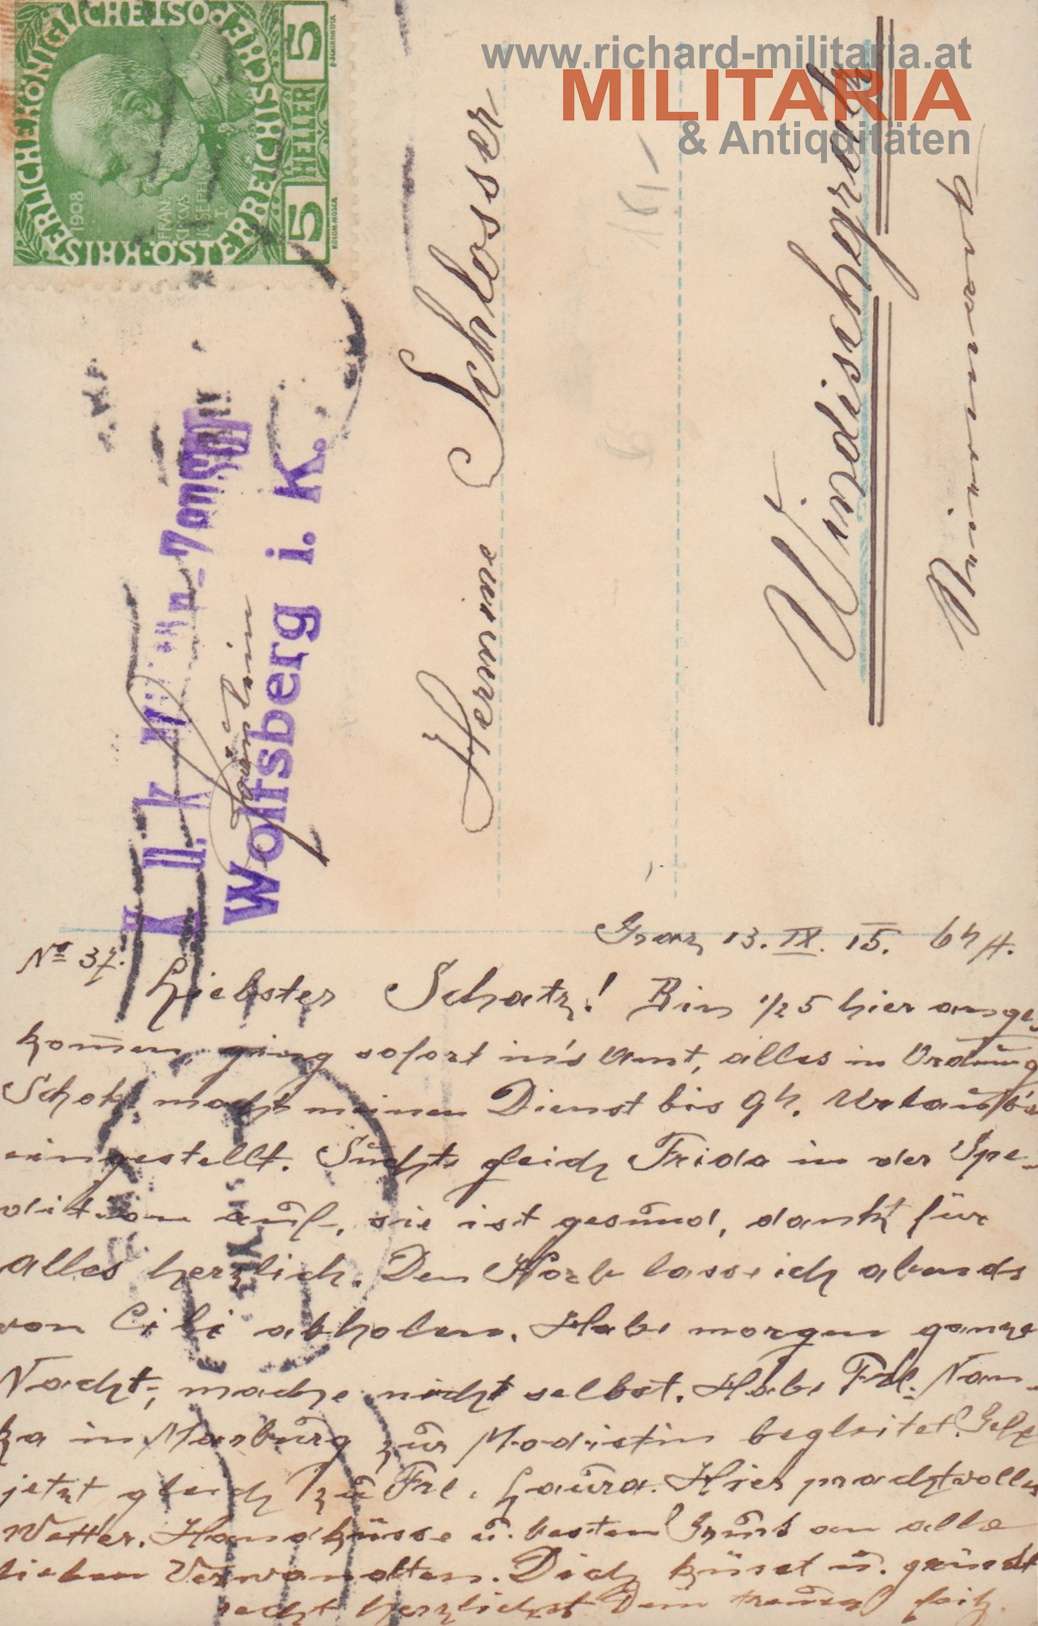 www.richard-militaria.at
MILITARIA
& Antiquitäten
KAISERLICHE KÖNIGLICHE ÖSTERREICHISCHE POST
5 HELLER 5
1908
Fräulein
Hermine Schlosser
Windischgraz
K. u. k.
Wolfsberg i. K.
No 37.
Graz 13. IX. 15. 6h A.
Liebster Schatz! Bin 1/2 5 hier ange-
kommen, ging sofort in's Amt, alles in Ordnung
macht meinen Dienst bis 9h. Urlaub
eingestellt. Suchte gleich Frida in der Spe-
dition auf, sie ist gesund, dankt für
alles herzlich. Den Korb lasse ich abends
von Cili abholen. Habe morgen ganze
Nacht, mache nicht selbst. Habe Frl.
in Marburg zur Modistin begleitet.
jetzt gleich zu Frl. Laura. Hier prachtvolles
Wetter. Handküsse u. besten Gruß an alle
lieben Verwandten. Dich küsst u. grüsst
recht herzlichst Dein treuer